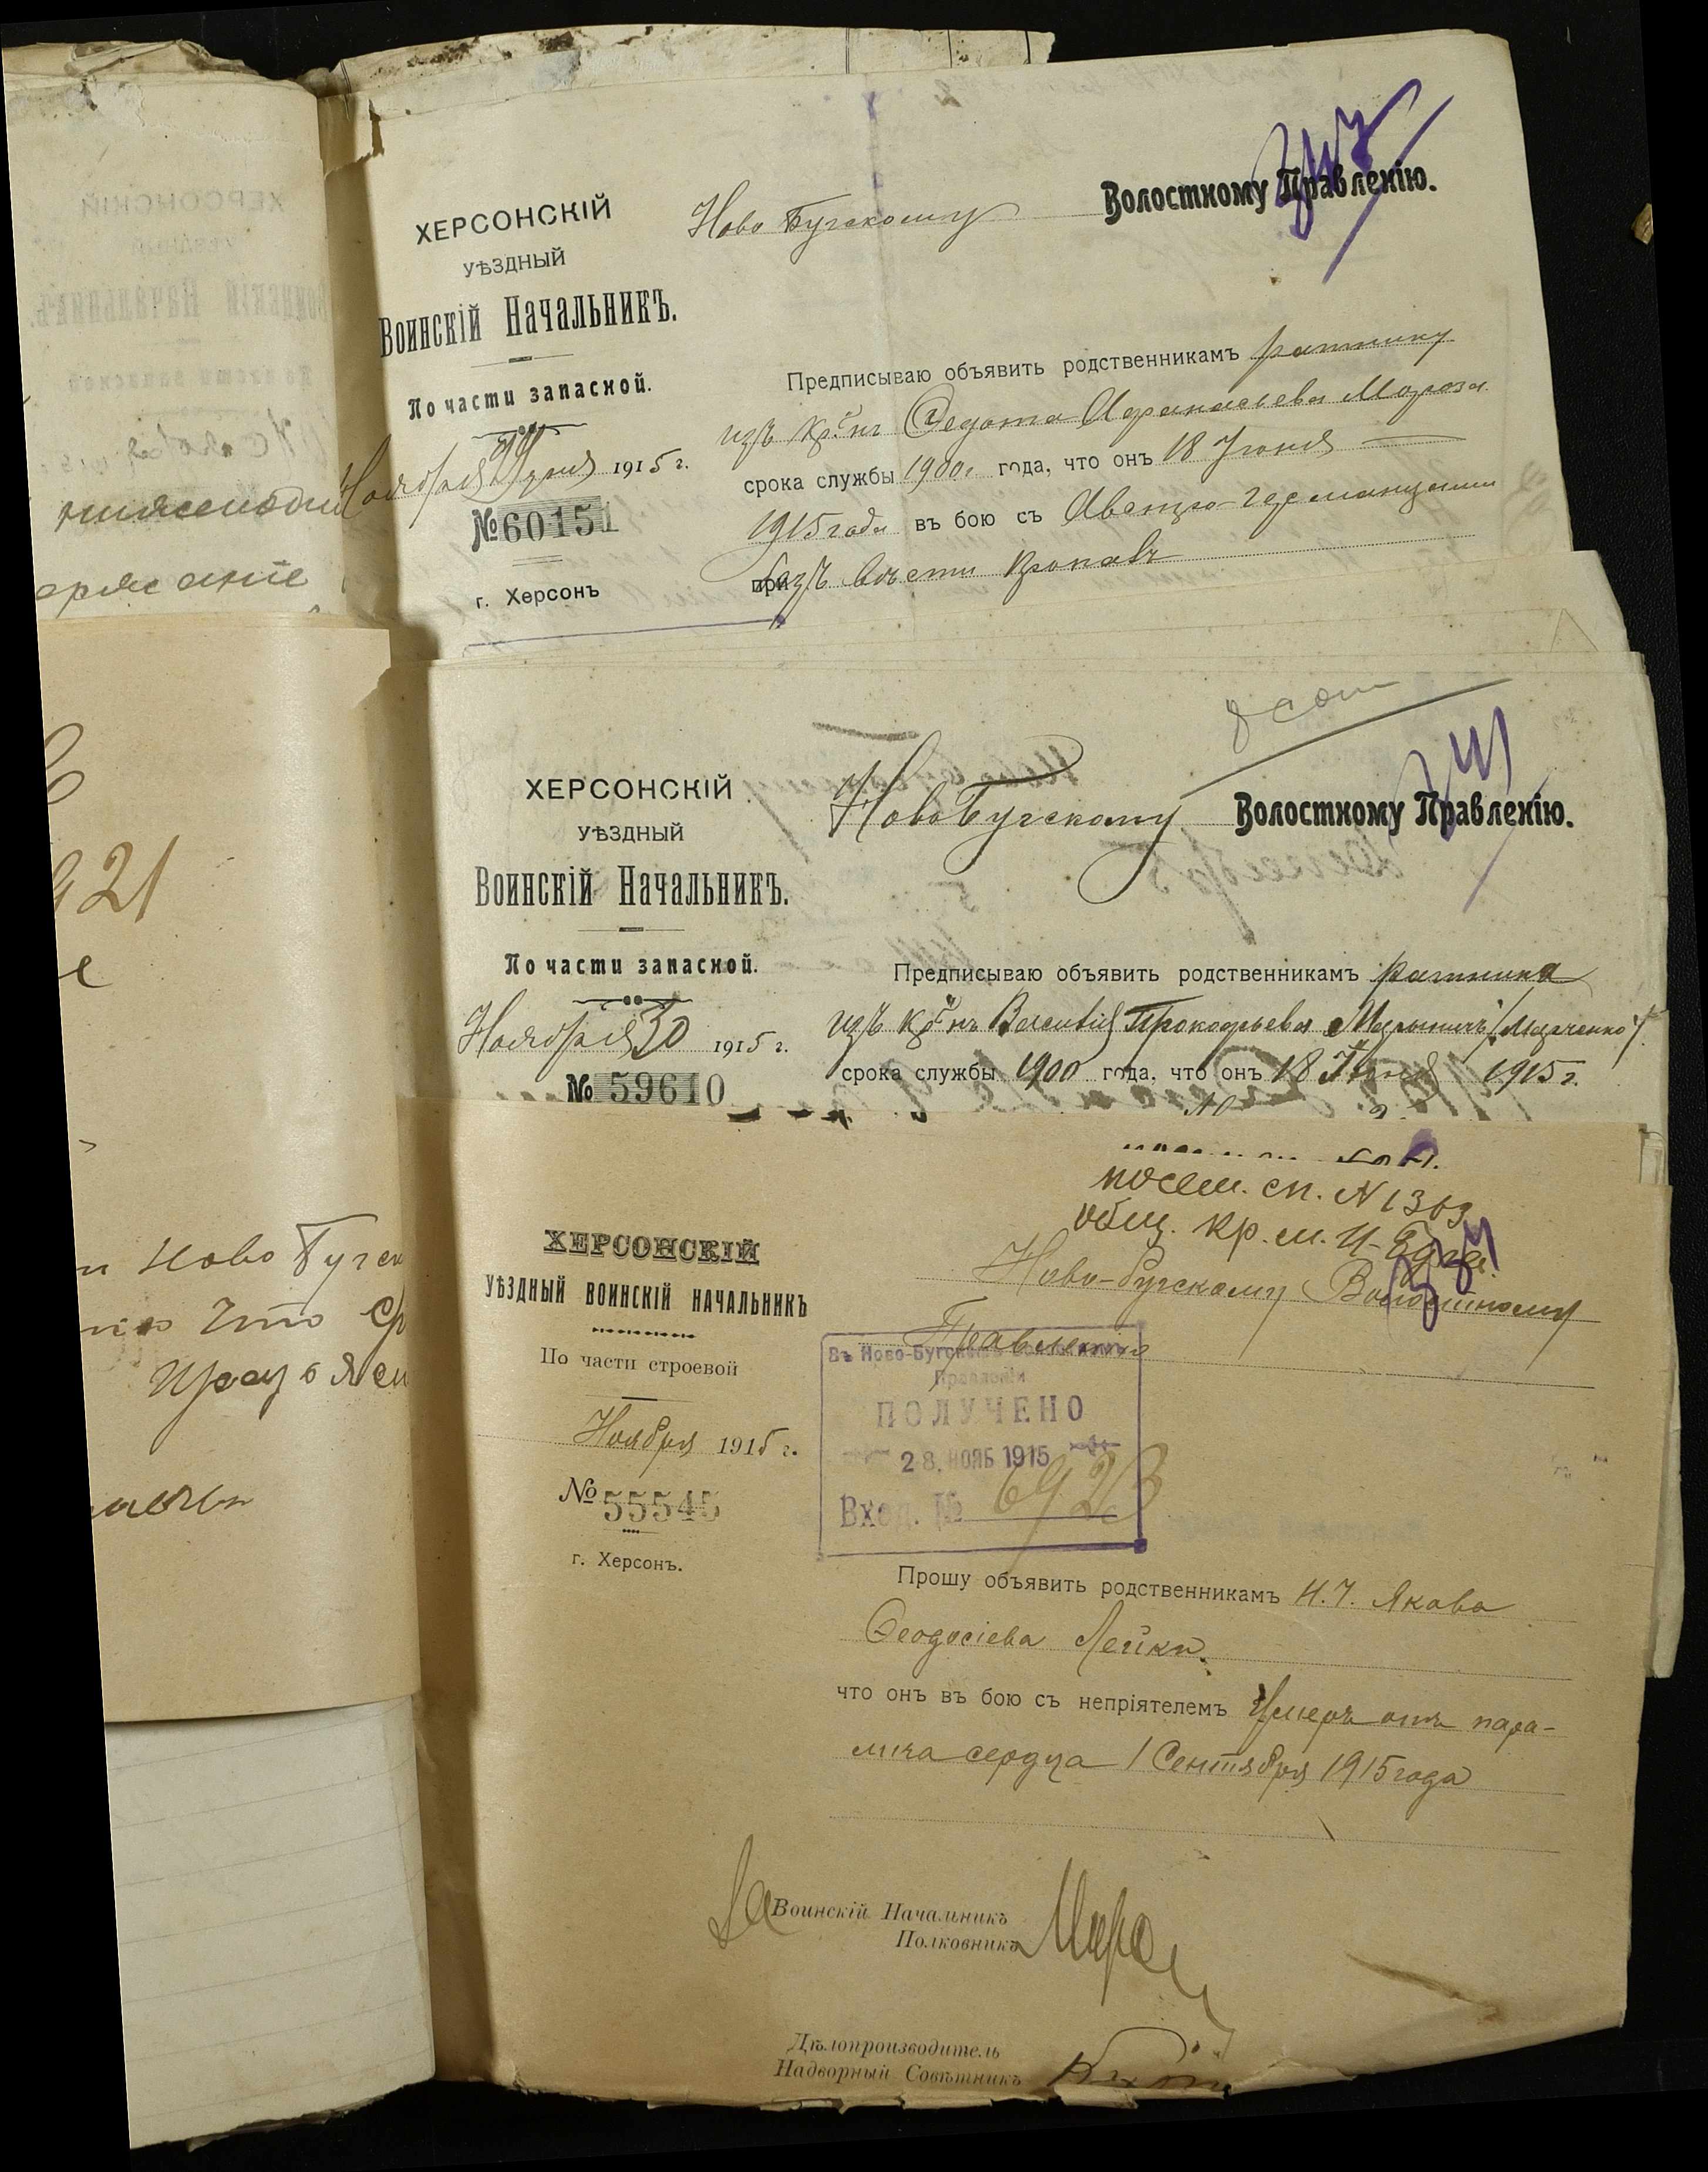 ХЕРСОНСКІЙ
УѢЗДНЫЙ
Воинскій Начальникъ.
По части запасной.
Ноября 1915 г.
№ 60151
г. Херсонъ
Ново Бугскому Волостному Правленію.
Предписываю объявить родственникамъ ратнику
изъ кр-нъ Федота Афанасьева Мороза
срока службы 1900 г. года, что онъ 18 Іюня
1915 года въ бою съ Австро-Германцами
безъ вѣсти пропавъ
8 сот
ХЕРСОНСКІЙ
УѢЗДНЫЙ
Воинскій Начальникъ.
По части запасной.
Ноября 30 1915 г.
№ 59610
Ново Бугскому Волостному Правленію.
Предписываю объявить родственникамъ ратника
изъ кр-нъ Прокофьева
срока службы 1900 года, что онъ 18 Іюня 1915 г.
посем. сп. N 1303
общ. кр. м. Н-
ХЕРСОНСКІЙ
УѢЗДНЫЙ ВОИНСКІЙ НАЧАЛЬНИКЪ
По части строевой
Ноября 1915 г.
№ 55545
г. Херсонъ.
Ново-Бугскому Волостному
Правленію
Въ Ново-Бугскомъ Волостномъ
Правленіи
ПОЛУЧЕНО
28. НОЯБ 1915
Вход. № 6923
Прошу объявить родственникамъ Н.Ч. Якова
Феодосіева Лейки.
что онъ въ бою съ непріятелемъ Умеръ отъ пара-
лича сердца 1 Сентября 1915 года
За Воинскій Начальникъ
Полковникъ
Дѣлопроизводитель
Надворный Совѣтникъ
921
Ново Бугск
что